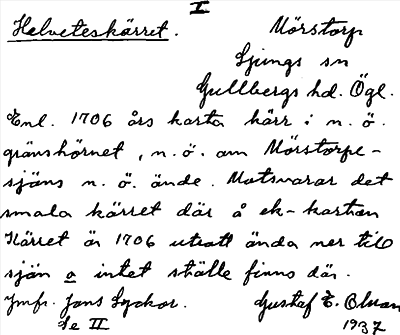 I
Helveteskärret.
Mörstorp
Ljungs sn
Gullbergs hd. Ögl.
Enl. 1706 års karta kärr i n. ö.
gränshörnet, n. ö. om Mörstorpe-
sjöns n. ö. ände. Motsvarar det
smala kärret där å ek-kartan
Kärret är 1706 utsatt ända ner till
sjön o intet ställe finns där.
Jmfr. Jons Lyckor.
Se II
Gustaf E. Olsson
1937